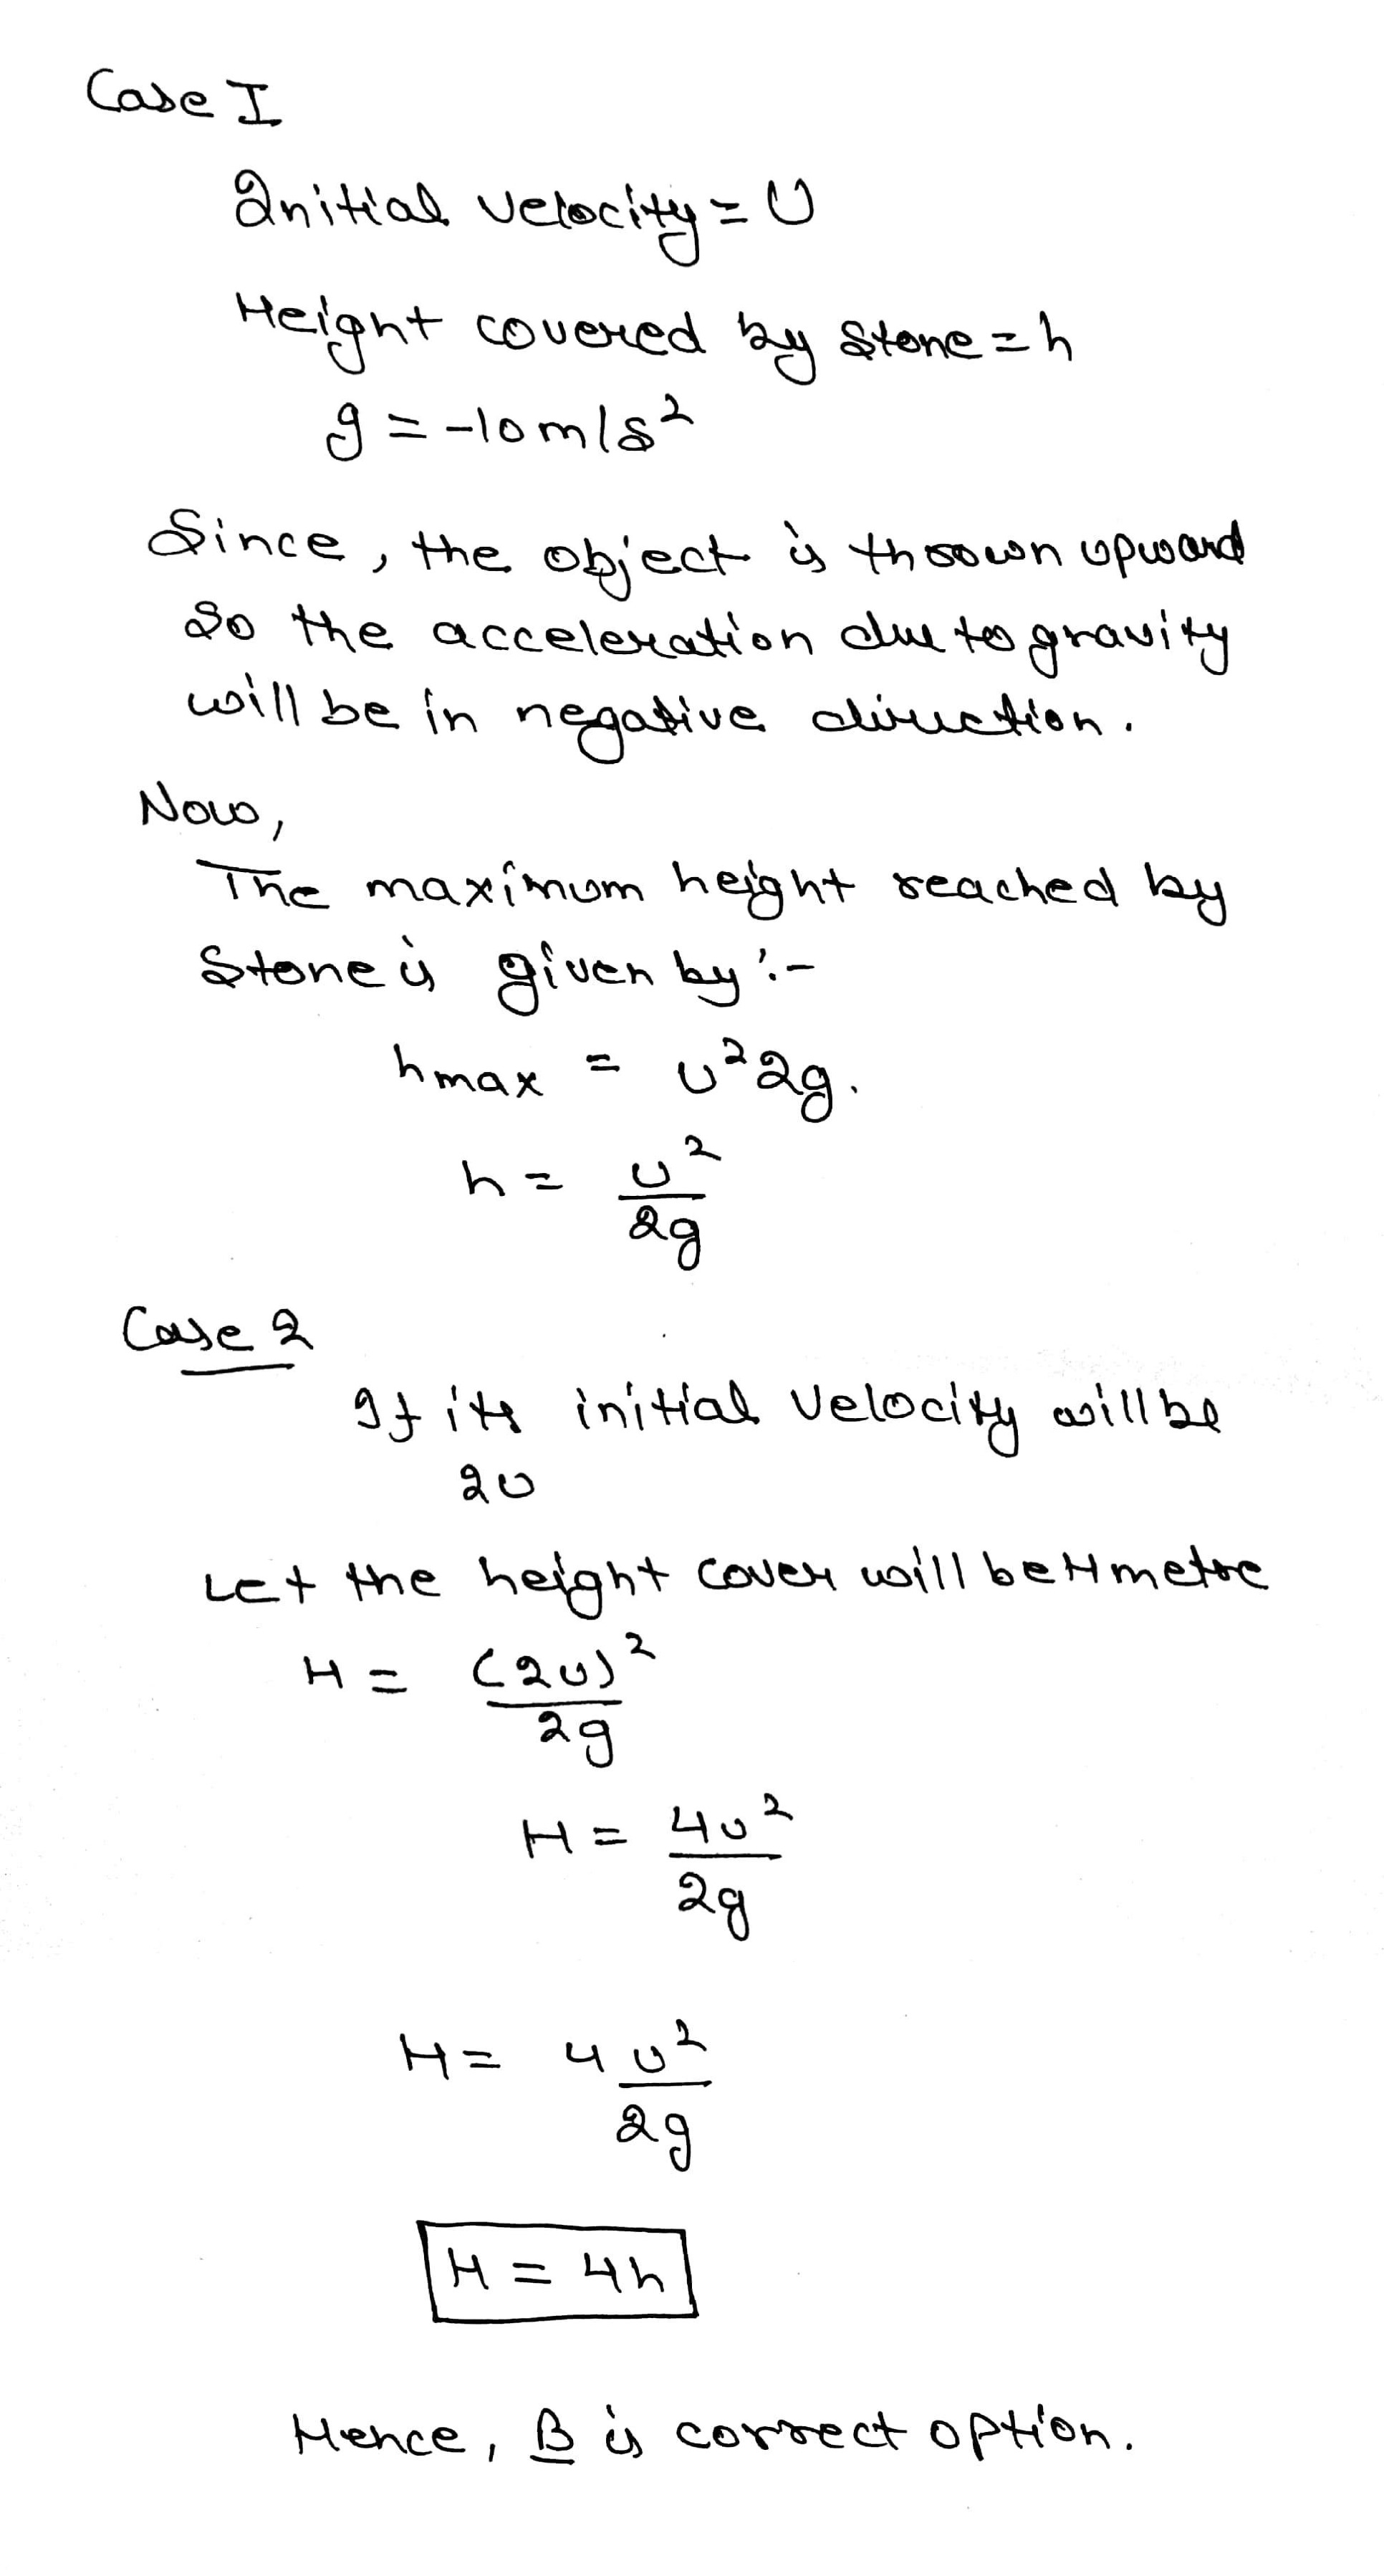 Case I
Initial velocity = U
Height covered by stone = h
g = -10m/s²
Since, the object is thrown upward
So the acceleration due to gravity
will be in negative direction.
Now,
The maximum height reached by
Stone is given by :-
hmax = u²2g.
h = u²/2g
Case 2
If its initial velocity will be
2u
Let the height cover will be H metre
H = (2u)²/2g
H = 4u²/2g
H = 4 u²/2g
H = 4h
Hence, B is correct option.